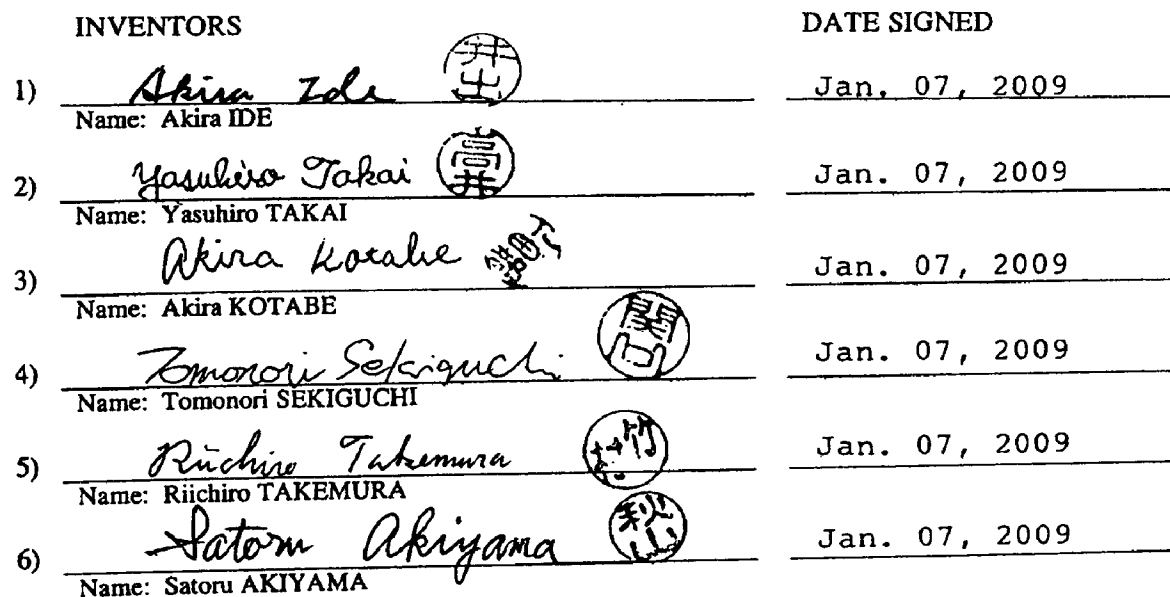 INVENTORS DATE SIGNED
1) Akira Ide 井出 Jan. 07, 2009
Name: Akira IDE
2) Yasuhiro Takai 高井 Jan. 07, 2009
Name: Yasuhiro TAKAI
3) Akira Kotabe Jan. 07, 2009
Name: Akira KOTABE
4) Tomonori Sekiguchi 関口 Jan. 07, 2009
Name: Tomonori SEKIGUCHI
5) Riichiro Takemura 竹村 Jan. 07, 2009
Name: Riichiro TAKEMURA
6) Satoru Akiyama 秋山 Jan. 07, 2009
Name: Satoru AKIYAMA